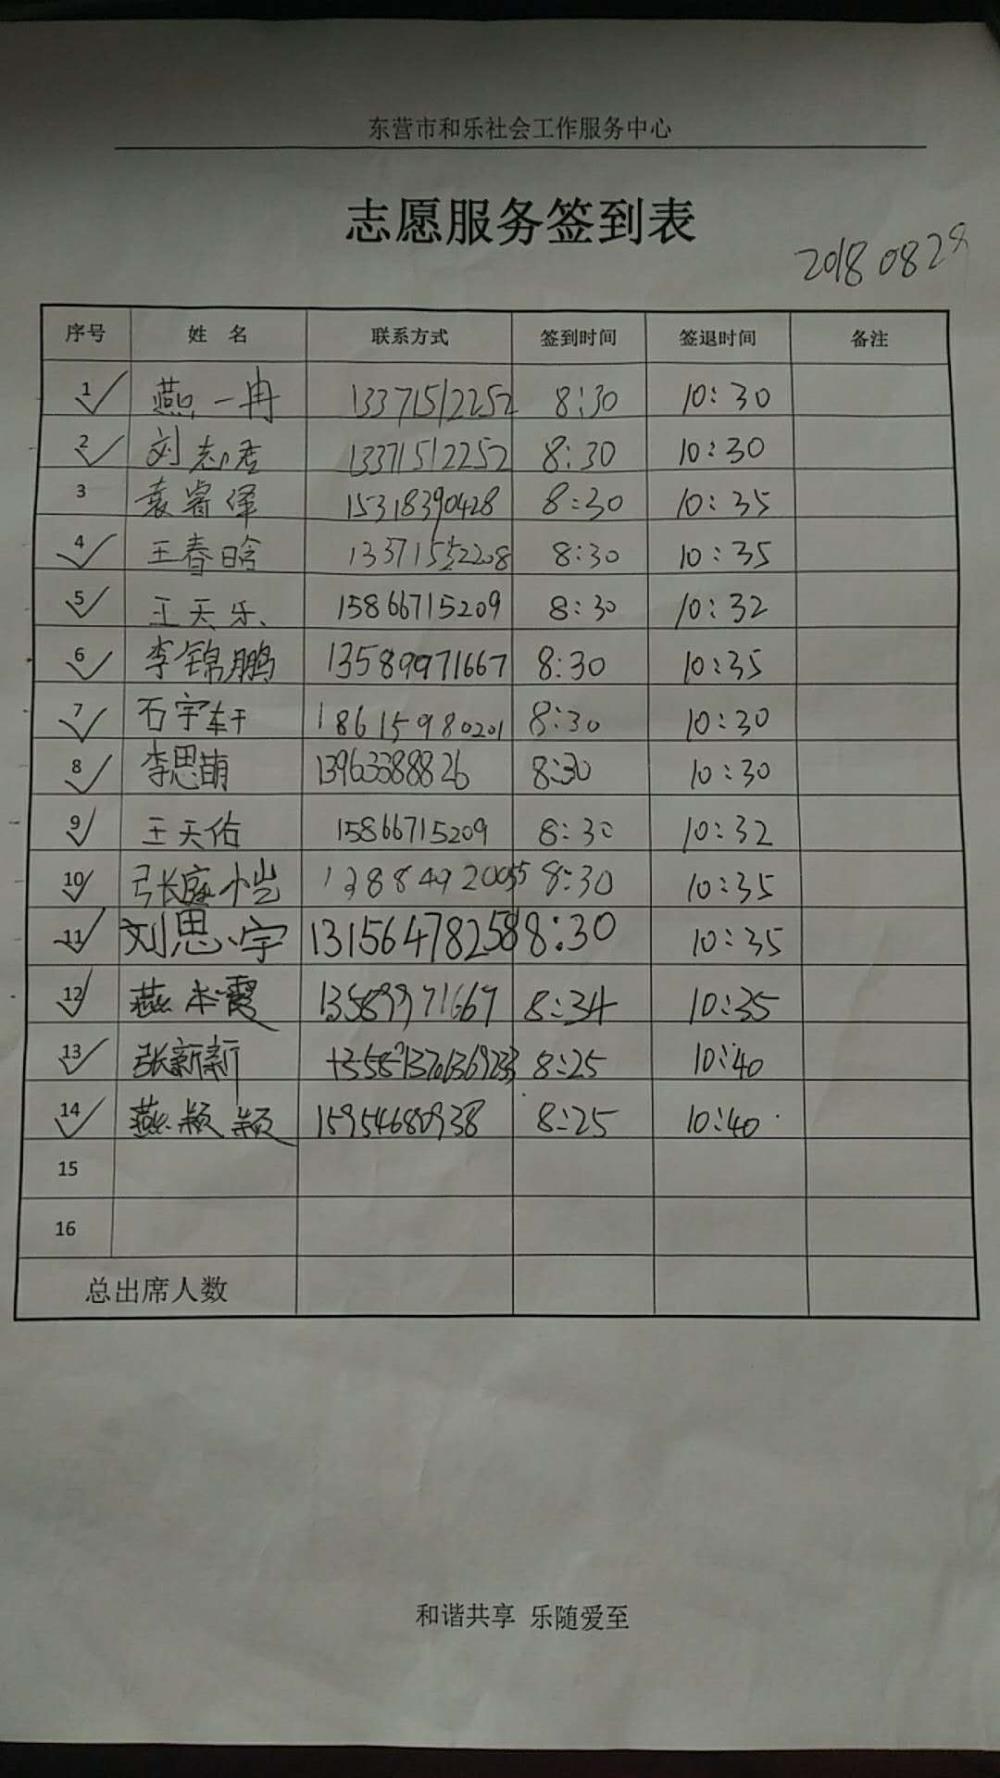 东营市和乐社会工作服务中心
志愿服务签到表
2018 08 28
序号 姓 名 联系方式 签到时间 签退时间 备注
1 燕一冉 13371512252 8:30 10:30
2 刘志君 13371512252 8:30 10:30
3 袁睿泽 15318390428 8:30 10:35
4 王春晗 8:30 10:35
5 王天乐 15866715209 8:30 10:32
6 李锦鹏 13589971667 8:30 10:35
7 石宇轩 18615980201 8:30 10:30
8 李思萌 13963388826 8:30 10:30
9 王天佑 15866715209 8:30 10:32
10 张庭恺 8:30 10:35
11 刘思宇 13156478258 8:30 10:35
12 燕本霞 13589971667 8:34 10:35
13 张新新 8:25 10:40
14 燕颖颖 15954680938 8:25 10:40
15
16
总出席人数
和谐共享 乐随爱至